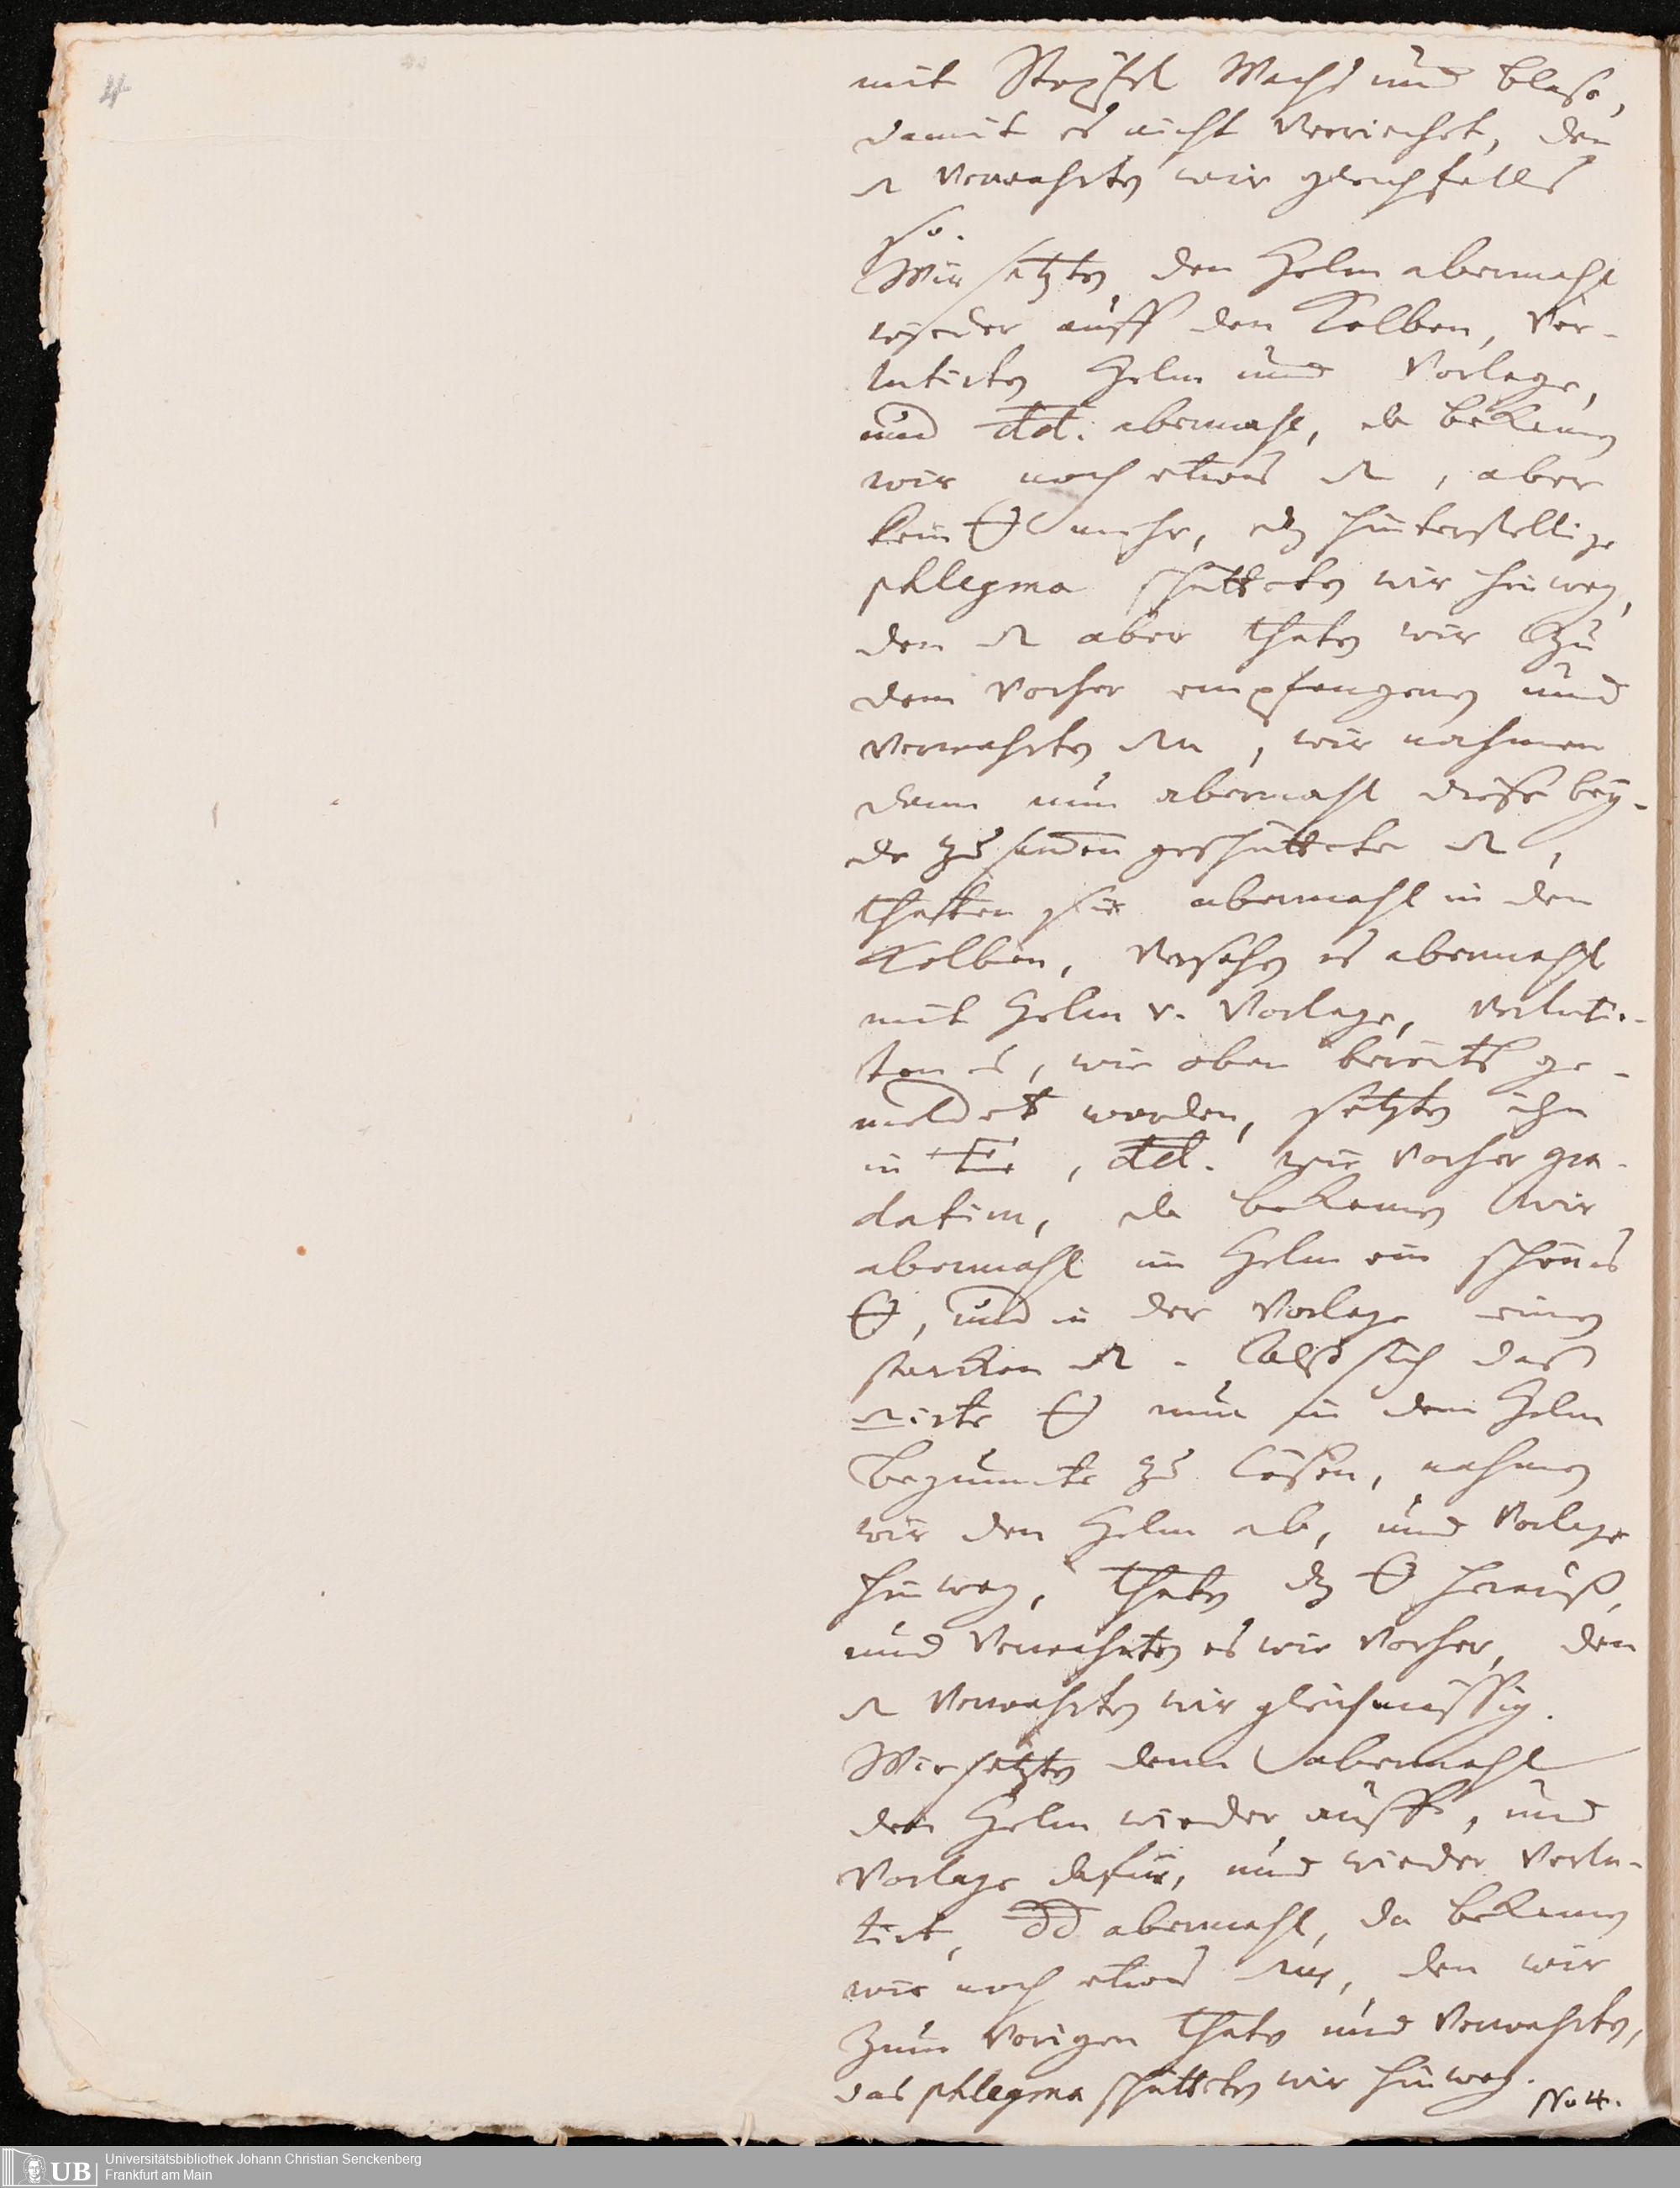 4
mit Stopfel Wachs und blase,
damit es nicht verriechet, den
verwahrten wir gleichfalls
so.
Wir setzten den Helm abermahl
wieder auff den Kolben, ver-
lutirten Helm und Vorlage,
und dd. abermahl, da bekamen
wir noch etwas , aber
kein mehr, dz hinterstellige
phlegma schütteten wir hinweg,
den aber thaten wir zu
dem vorher empfangenen und
verwahrten , wir nahmen
denn nun abermahl diese bey-
de zusammen geschüttete ,
thatten sie abermahl in den
Kolben, versahen es abermahl
mit Helm v. Vorlage, verlutir-
ten es, wie oben bereits ge-
meldet worden, setzten ihn
in , dd. wie vorher gra-
datim, da bekamen wir
abermahl im Helm ein schönes
, und in der Vorlage einen
starcken . Als sich das
nun in dem Helm
begunnte zu lösen, nahmen
wir den Helm ab, und Vorlage
hinweg, thaten dz herauß,
und verwahrten es wie vorher, den
verwahrten wir gleichmässig.
Wir setzten denn abermahl
den Helm wieder auff, und
Vorlage dafür, und wieder verlu-
tirt, dd abermahl, da bekamen
wir noch etwas , den wir
zum vorigen thaten und verwahrten,
das phlegma schütteten wir hinweg.
No 4.
UB
Universitätsbibliothek Johann Christian Senckenberg
Frankfurt am Main